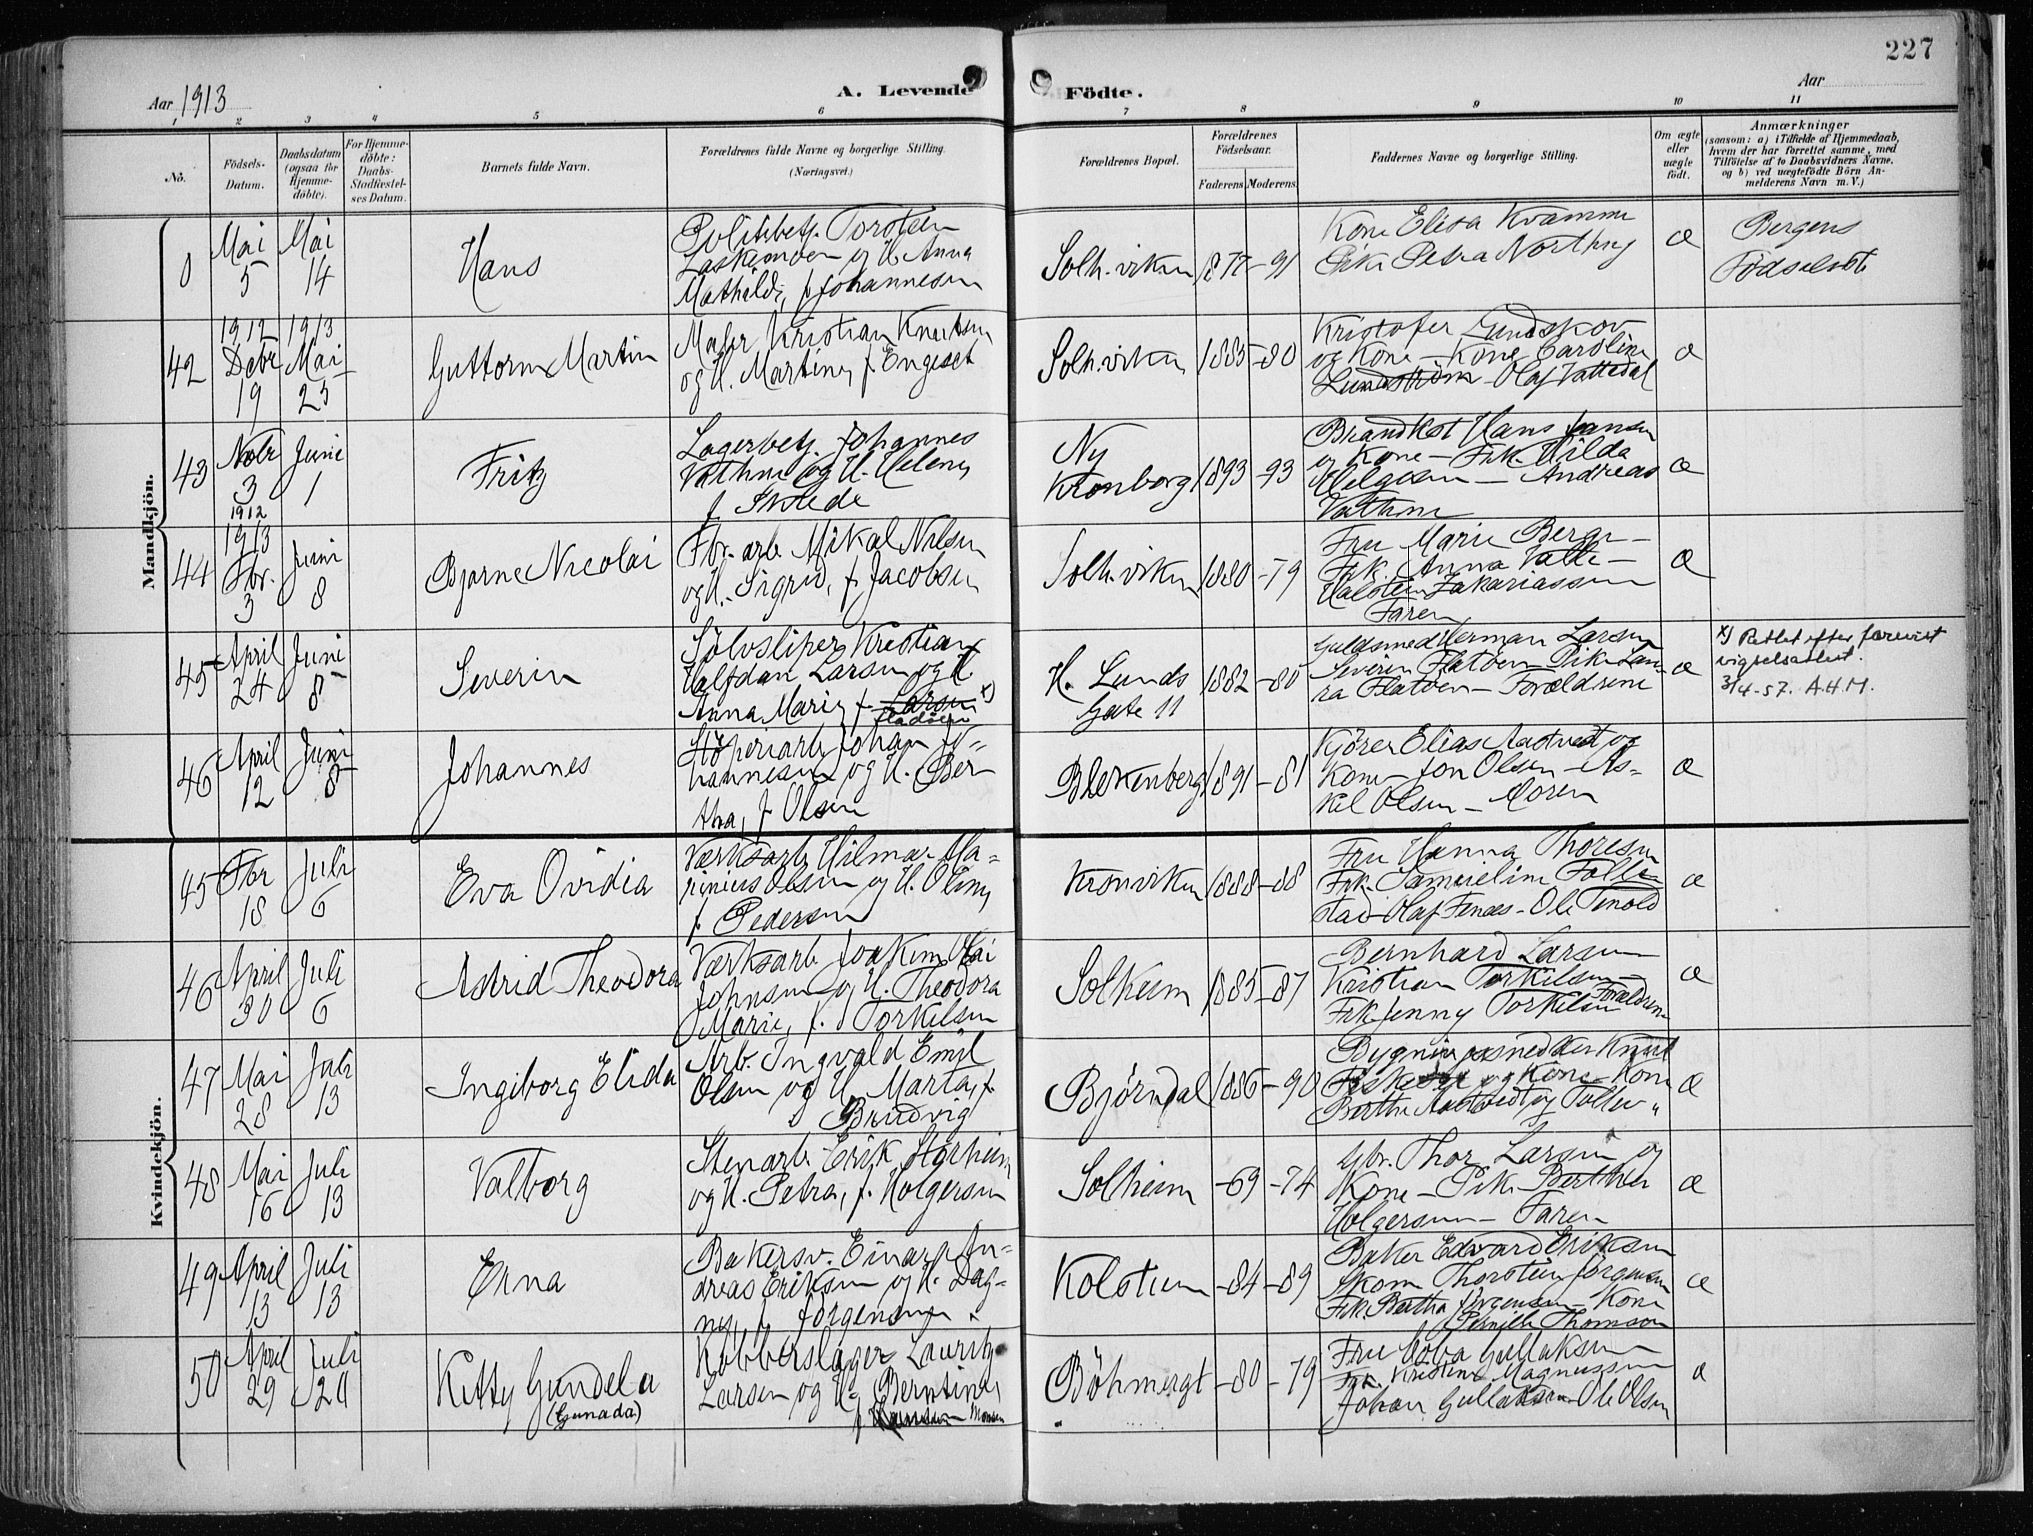 227
Aar 1913
A. Levende Födte.
Aar
1 2 3 4 5 6 7 8 9 10 11
No.
Födsels-Datum.
Daabsdatum (ogsaa for Hjemmedöbte).
For Hjemmedöbte: Daabs-Stadfæstelses Datum.
Barnets fulde Navn.
Forældrenes fulde Navne og borgerlige Stilling. (Næringsvei.)
Forældrenes Bopæl.
Forældrenes Födselsaar.
Faderens Moderens
Faddernes Navne og borgerlige Stilling.
Om ægte eller uægte födt.
Anmærkninger
(saasom: a) i Tilfælde af Hjemmedaab, hvem der har forrettet samme, med Tilföielse af to Daabsvidners Navne, og b) ved uægtefödte Börn Anmelderens Navn m. V.)
Mandkjön.
0
Mai 5
Mai 14
Hans
Politibetj. Torsten
og H. Anna
Mathilde, f. Johannesen
Solh.viken
1877
-91
Kone Elisa Kvamme
Pike Petra
æ
Bergens
Fødselsst
42
1912 Debr 19
1913 Mai 25
Guttorm Martin
Maler Kristian Knutsen
og H. Martine, f. Engeset
Solh.viken
1885
-80
Kristofer Lundskov
og Kone - Kone Caroline
Lundström - Olaf Vattedal
æ
43
Nobr 3 1912
Juni 1
Fritz
Lagerbetj. Johannes
Vathne og H. Helene,
f.
Ny
Kronborg
1893
-93
Brandkst Hans Jansen
og Kone - Frk. Hilda
Helgesen - Andreas
Vathne
æ
44
1913 Fbr. 3
Juni 8
Bjarne Nicolai
Fbr. arb. Mikal Nilsen
og H. Sigrid, f. Jacobsen
Solh.viken
1880
-79
Fru Marie Berge -
Frk. Anna Valle -
Halstein Zakariassen
Faren
æ
45
April 24
Juni 8
Severin
Sølvsliper Kristian
Halfdan Larsen og H.
Anna Marie, f. Larsen x)
Fladöen
H. Lunds
Gate 11
1882
-80
Guldsmed Herman Larsen
Severin Flatöen - Pike Lau
ra Flatöen - Forældrene
æ
x) Rettet efter forevist
vigselsattest.
3/4-57. A.H.M.
46
April 12
Juni 8
Johannes
Støperiarb. Johan Jo=
hannesen og H. Ber
tha, f. Olsen
Blekenberg
1891
-81
Kjører Elias Aastvedt og
Kone - Jon Olsen - As=
kil Olsen - Moren
æ
Kvindekjön.
45
Fbr 18
Juli 6
Eva Ovidia
Værksarb. Hilmar Ma=
rinius Olsen og H. Oline,
f. Pedersen
Kronviken
1888
-88
Fru Hanna Thoresen
Frk. Samueline Follin
stad - Olaf Fenæs - Ole Tenold
æ
46
April 30
Juli 6
Astrid Theodora
Værksarb. Joakim Mai
Johnsen og H. Theodora
Marie, f. Torkilsen
Solheim
1885
-87
Bernhard Larsen
Kristian Torkilsen -
Frk Jenny Torkilsen Forældrene
æ
47
Mai 28
Juli 13
Ingiborg Elida
Arb. Ingvald Emil
Olsen og H. Marta, f.
Brudvig
Bjørndal
1886
-90
Bygningssnedker Knut
og Kone - Kone
Berthe Aastvedt og
æ
48
Mai 16
Juli 13
Valborg
Stenarb. Erik Storheim
og H. Petra, f. Holgersen
Solheim
-69
-74
Gbr. Thor Larsen og
Kone - Pike Berthe
Holgersen - Faren
æ
49
April 13
Juli 13
Erna
Bakersv. Einar An=
dreas Eriksen og H. Dag=
ny, f. Jörgensen
Kolstien
-84
-89
Baker Edvard Eriksen
Skom. Thorstein Jörgensen
Frk. Bertha Jörgensen - Kone
Pernille Thomson
æ
50
April 29
Juli 20
Kitty Gundela
(Gunada)
Kobberslager Lauritz
Larsen og H. Berntine,
f. Monsen
Böhmergt
-80
-79
Fru Gullaksen
Frk. Kristine Magnussen
Johan Gullaksen - Ole Olsen
æ